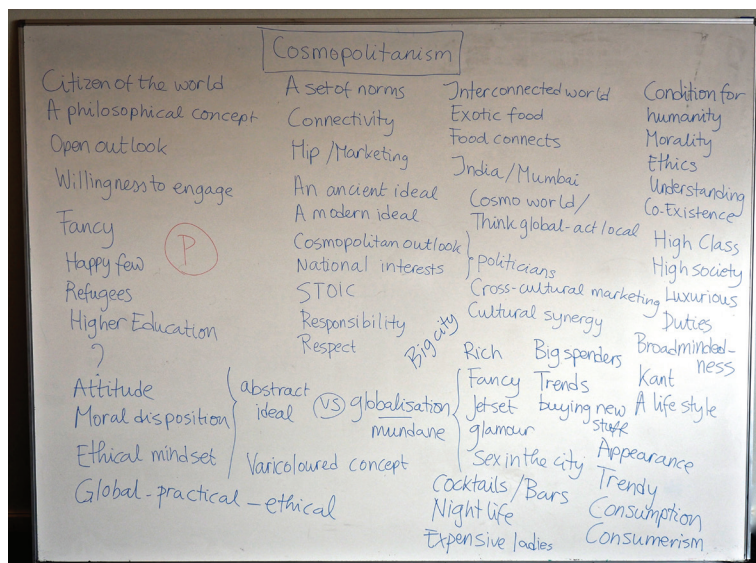 Cosmopolitanism
Citizen of the world
A philosophical concept
Open outlook
Willingness to engage
Fancy
P
Happy few
Refugees
Higher Education
?
Attitude
Moral disposition
Ethical mindset
Global - practical - ethical
A set of norms
Connectivity
Hip / Marketing
An ancient ideal
A modern ideal
Cosmopolitan outlook
National interests
politicians
STOIC
Responsibility
Respect
abstract
ideal
VS
globalisation
mundane
Varicoloured concept
Interconnected world
Exotic food
Food connects
India / Mumbai
Cosmo world /
Think global - act local
Cross-cultural marketing
Cultural synergy
Big city
Rich
Big spenders
Fancy
Trends
Jetset
buying new
stuff
glamour
Sex in the city
Cocktails / Bars
Night life
Expensive ladies
Condition for
humanity
Morality
Ethics
Understanding
Co-Existence
High Class
High society
Luxurious
Duties
Broadminded-
ness
Kant
A life style
Appearance
Trendy
Consumption
Consumerism